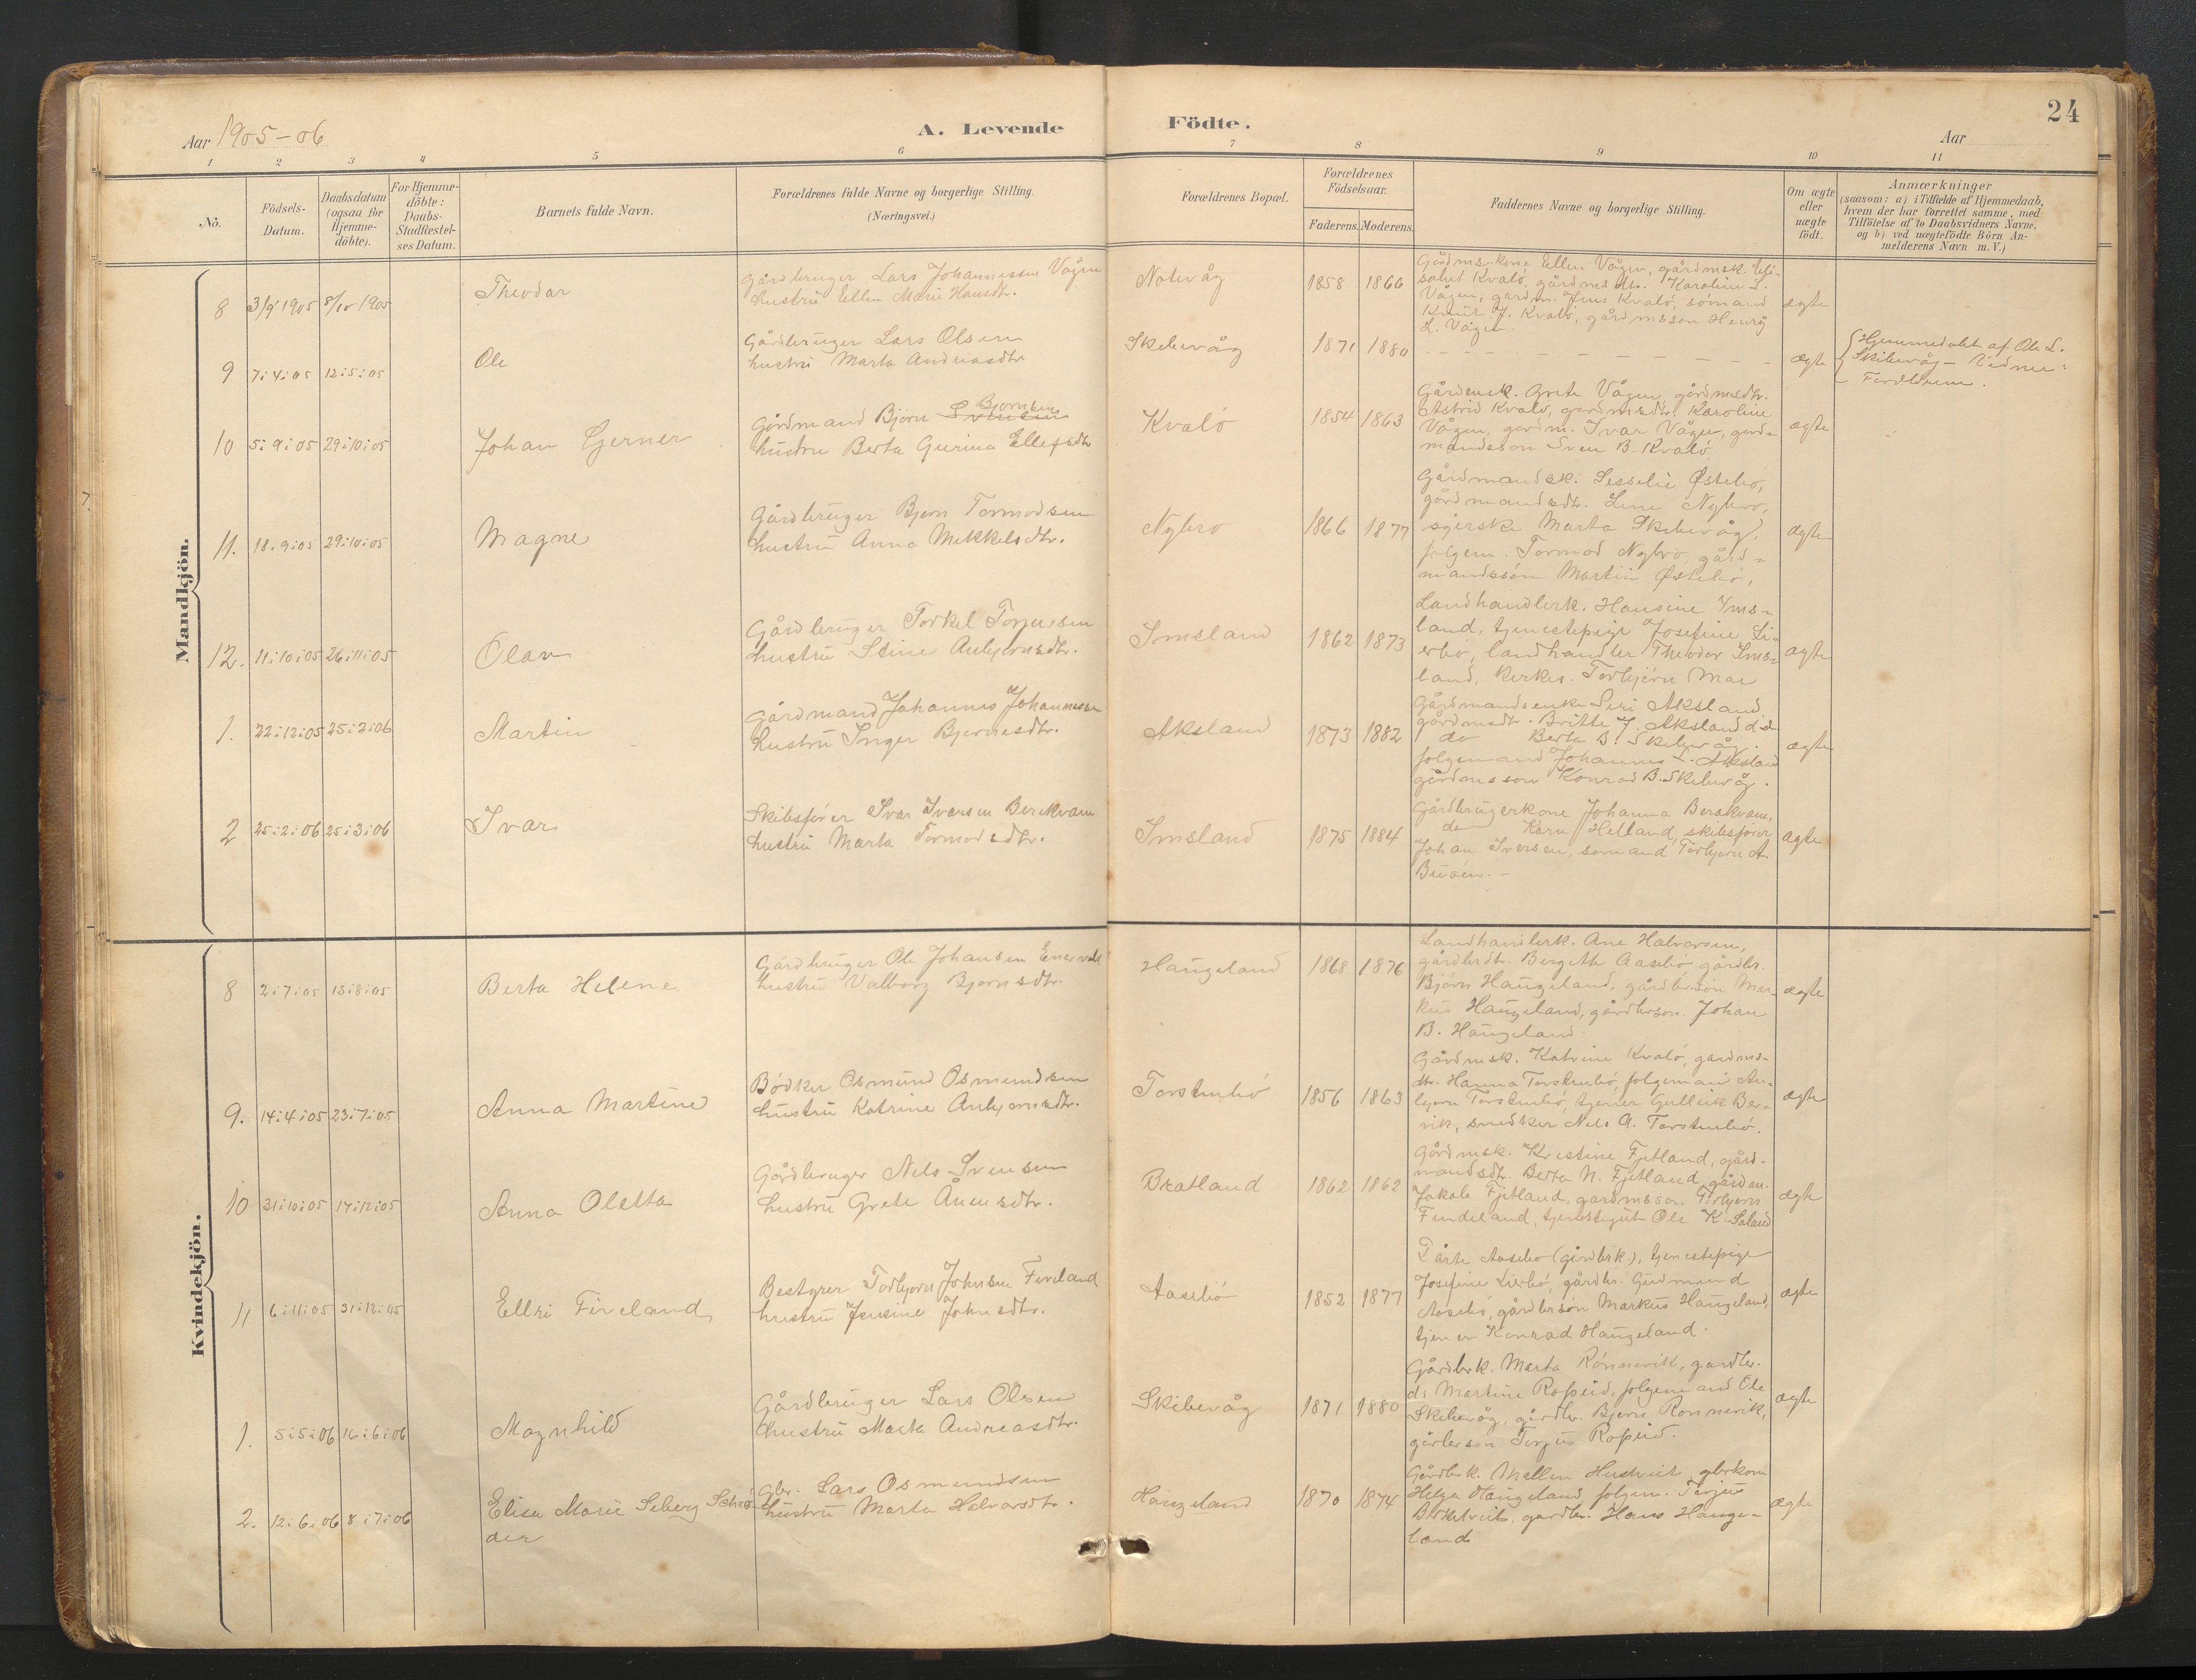 24
Aar 1905-06
A. Levende Födte.
Aar
1 2 3 4 5 6 7 8 9 10 11
No.
Födsels-Datum.
Daabsdatum (ogsaa for Hjemme-döbte).
For Hjemme-döbte: Daabs-Stadfæstel-ses Datum.
Barnets fulde Navn.
Forældrenes fulde Navne og borgerlige Stilling.
(Næringsvei.)
Forældrenes Bopæl.
Forældrenes Födselsaar.
Faderens. Moderens.
Faddernes Navne og borgerlige Stilling.
Om ægte eller uægte födt.
Anmærkninger
(saasom: a) i Tilfælde af Hjemmedaab,
hvem der har forrettet samme, med
Tilföielse af to Daabsvidners Navne.
og b) ved uægtefödte Börn An-
melderens Navn m. V.)
Mandkjön.
8 3/9 1905 8/10 1905 Theodor
Gårdbruger Lars Johannessen Vågen
hustru Ellen Marie Hansdtr.
Notevåg 1858 1866
Gårdmskone Ellen Vågen, gårdmsk. Eli-
sabet Kvalö, gårdmsdtr. Karoline L.
Vågen, gardm. Jens Kvalö, sömand
Knut J. Kvalö, gårdmsson Henrÿ
L. Vågen.
ægte
9 7:4:05 12:5:05 Ole
Gårdbruger Lars Olsen
hustru Marta Andreasdtr
Skibevåg 1871 1880
- - - - - - - - - -
ægte
Hjemmedöbt af Ole L.
Skibevåg - Vidner:
Forældrene.
10 5:9:05 29:10:05 Johan Gerner
Gårdmand Björn Svensen Bjornsen
hustru Berta Gurina Ellefsdtr
Kvalö 1854 1863
Gårdmsk. Grete Vågen, gårdmsdtr.
Astrid Kvalö, gardmsdtr. Karoline
Vågen, gardm. Ivar Vågen, gard-
mandsson Sven B. Kvalö
ægte
11. 18:9:05 29:10:05 Magne
Gårdbruger Bjorn Tormodsen
hustru Anna Mikkelsdtr.
Nybro 1866 1877
Gårdmandsk. Sesselie Østebo,
gårdmandsdtr. Line Nybro,
syerske Marta Skibevåg,
folgem. Tormod Nybro, gård-
mandssön Martin Østebö.
ægte
12. 11:10:05 26:11:05 Olav
Gårdbruger Torkel Torjussen
hustru Stine Anbjornsdtr.
Imsland 1862 1873
Landhandlerk. Hansine Ims-
land, tjenestepige Josefine Li-
erbö, landhandler Theodor Ims-
land, kirkes. Torbjörn Mæ
ægte
1. 22:12:05 25:2:06 Martin
Gårdmand Johannes Johannessen
hustru Inger Bjornesdtr.
Aksland 1873 1882
Gårdmandsenke Siri Aksland
gårdmsdtr. Britte J. Aksland
do Berta B. Skibevåg.
folgemand Johannes L. Aksland
gårdmsson Konrad B. Skibevåg.
ægte
2 25:2:06 25:3:06 Ivar
Skibsförer Ivar Iversen Berekvam
hustru Marta Tormodsdtr.
Imsland 1875 1884
Gårdbrugerkone Johanna Berekvam,
do Kari Helland, skibsförer
Johan Iversen, sömand Torbjorn A
Buöen. -
ægte
Kvindekjön.
8 2:7:05 13:8:05 Berta Helene
Gårdbruger Ole Johansen
hustru Valborg Bjornsdtr.
Haugeland 1868 1876
Landhandlerk. Ane Halvorsen,
gårdbrdtr. Bergitte Aasebö gårdbr.
Björn Haugeland, gårdbr.sön Mar-
kus Haugeland, gårdbrson. Johan
B. Haugeland.
ægte
9. 14:4:05 23:7:05 Anna Martine
Bödker Osmund Osmundsen
hustru Katrine Anbjornsdtr.
Torsteinbö 1856 1863
Gårdmsk. Katrine Kvalö, gardms-
dtr. Hanna Torsteinbö, folgeman An-
bjorn Torsteinbö, tjener Gulleik Ber-
vik, snedker Nils A. Torsteinbö.
ægte
10 31:10:05 17:12:05 Anna Oletta
Gårdbruger Nels Svensen
hustru Grete Ånensdtr.
Bratland 1862 1862
Gårdmsk. Kristine Fjetland, gård-
mandsdtr. Berta N. Fjetland, gårdm.
Jakob Fjitland, gardmsson. Torbjorn
Findeland, tjenstegut Ole K. Saland
ægte
11 6:11:05 31:12:05 Ellri Fineland
Bestyrer Torbjorn Johnsen Fineland
hustru Jensine Johnsdtr.
Aasebö 1852 1877
Dårte Aasebo (gårdbrk.), tjenestepige
Josefine Lierbö, gårdbr. Gudmund
Aasebö, gårdbrsön Markus Haugeland,
tjener Konrad Haugeland.
ægte
1. 5:5:06 16:6:06 Magnhild
Gårdbruger Lars Olsen
hustru Marta Andreasdtr.
Skibevåg 1871 1880
Gårdbrk. Marta Rönnevik, gardbr.
dr Martine Roßeid, folgemand Ole
Skibevåg, gårdbr. Bjorn Ronnevik,
gårdbrson Torjus Roßeid.
ægte
2. 12:6:06 8:7:06 Elisa Marie Seberg Schrö-
der
Gbr. Lars Osmundsen
hustru Marta Halvorsdtr.
Haugeland 1870 1874
Gårdbrk. Mallene Hustveit, gbrkone
Helga Haugeland folgem. Torjus
Birketveit, gardbr. Hans Hauge-
land
ægte